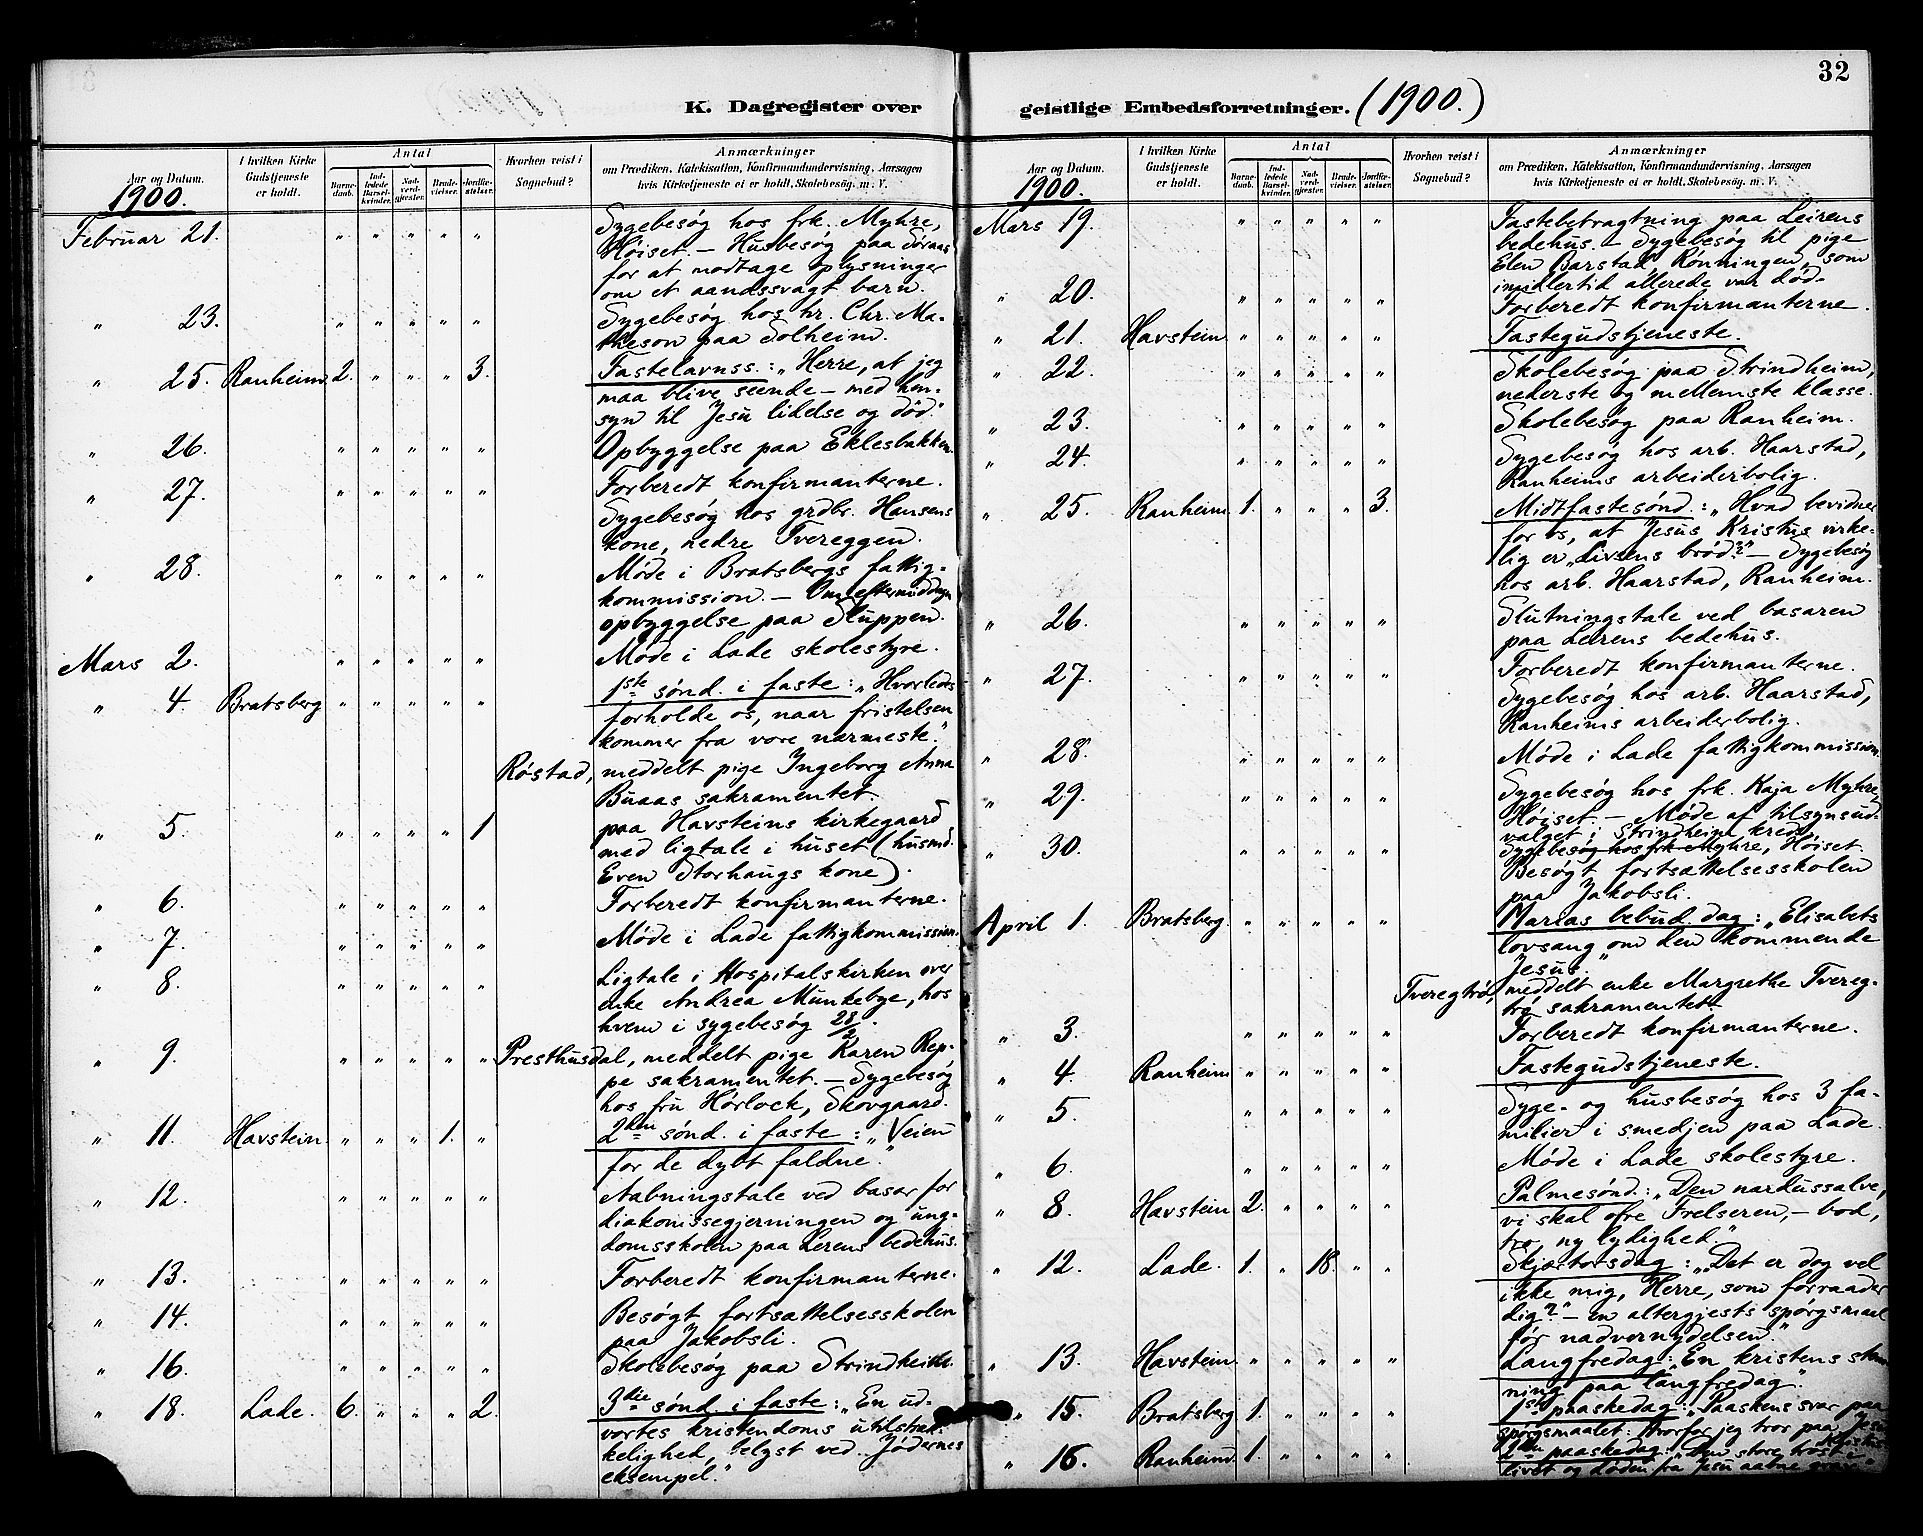 32
K. Dagregister over geistlige Embedsforretninger. (1900.)
Aar og Datum.
1900.
I hvilken Kirke Gudstjeneste er holdt.
Antal
Barnedaab. Indledede Barselkvinder. Nadverdgjester. Brudevielser. Jordfæstelser.
Hvorhen reist i Sognebud?
Anmærkninger
om Prædiken, Katekisation, Konfirmandundervisning, Aarsagen
hvis Kirketjeneste ei er holdt, Skolebesøg, m. V.
Februar 21. " " " " " Sygebesøg hos frk. Myhre,
Høiset. – Husbesøg paa Søraas
for at modtage oplysninger
om et aandssvagt barn.
" 23. " " " " " Sygebesøg hos hr. Chr. Ma-
theson paa Solheim.
" 25. Ranheim. 2. " " " 3. Fastelavnss.: "Herre, at jeg
maa blive seende – med hen-
syn til Jesu lidelse og død."
" 26. " " " " " Opbyggelse paa Eklesbakken.
" 27. " " " " " Forberedt konfirmanterne.
Sygebesøg hos grdbr. Hansens
kone, nedre Tvereggen.
" 28. " " " " " Møde i Bratsbergs fattig-
kommission. – Om eftermiddagen
opbyggelse paa Sluppen.
Mars 2. " " " " " Møde i Lade skolestyre.
" 4. Bratsberg " " " " " 1ste sønd. i faste: "Hvorledes
forholde os, naar fristelsen
kommer fra vore nærmeste."
Røstad, meddelt pige Ingeborg Anna
Buaas sakramentet.
" 5. " " " " 1 paa Havsteins kirkegaard
med ligtale i huset (husmd.
Even Storhaugs kone).
" 6. " " " " " Forberedt konfirmanterne.
" 7. " " " " " Møde i Lade fattigkommission.
" 8. " " " " " Ligtale i Hospitalskirken over
enke Andrea Munkebye, hos
hvem i sygebesøg 28/2.
" 9. " " " " " Presthusdal, meddelt pige Karen Rep-
pe sakramentet. – Sygebesøg
hos fru Hørlock, Skovgaard.
" 11. Havstein. " " " 1. " 2den sønd. i faste: "Veien
for de dybt faldne."
" 12. " " " " " Aabningstale ved basar for
diakonissegjerningen og ung-
domsskolen paa Lerens bedehus.
" 13. " " " " " Forberedt konfirmanterne.
" 14. " " " " " Besøgt fortsættelsesskolen
paa Jakobsli.
" 16. " " " " " Skolebesøg paa Strindheim.
" 18. Lade. 6. " " " 2. 3die sønd. i faste: "En ud-
vortes kristendoms utilstræk-
kelighed, belyst ved Jødernes
eksempel."
Aar og Datum.
1900.
I hvilken Kirke Gudstjeneste er holdt.
Antal
Barnedaab. Indledede Barselkvinder. Nadverdgjester. Brudevielser. Jordfæstelser.
Hvorhen reist i Sognebud?
Anmærkninger
om Prædiken, Katekisation, Konfirmandundervisning, Aarsagen
hvis Kirketjeneste ei er holdt, Skolebesøg, m. V.
Mars 19. " " " " " Fastebetragtning paa Leirens
bedehus. – Sygebesøg til pige
Elen Barstad, Rønningen, som
imidlertid allerede var død.
" 20. " " " " " Forberedt konfirmanterne.
" 21. Havstein " " " " " Fastegudstjeneste.
" 22. " " " " " Skolebesøg paa Strindheim,
nederste og mellemste klasse.
" 23. " " " " " Skolebesøg paa Ranheim.
" 24. " " " " " Sygebesøg hos arb. Haarstad,
Ranheims arbeiderbolig.
" 25. Ranheim. 1. " " " 3. Midtfastesønd.: "Hvad bevidner
for os, at Jesus Kristus virke-
lig er "livsens brød"?" – Sygebesøg
hos arb. Haarstad, Ranheim.
" 26. " " " " " Slutningstale ved basaren
paa Leirens bedehus.
" 27. " " " " " Forberedt konfirmanterne.
Sygebesøg hos arb. Haarstad,
Ranheims arbeiderbolig.
" 28. " " " " " Møde i Lade fattigkommission.
" 29. " " " " " Sygebesøg hos frk. Kaja Myhre,
Høiset. – Møde af tilsynsud-
valget i Strindheim kreds.
" 30. " " " " " Sygebesøg hos frk Myhre, Høiset.
Besøgt fortsættelsesskolen
paa Jakobsli.
April 1. Bratsberg. " " " " " Marias bebud. dag: "Elisabets
lovsang om den kommende
Jesus."
Tveregtrø, meddelt enke Margrethe Tvereg-
trø sakramentet.
" 3. " " " " " Forberedt konfirmanterne.
" 4. Ranheim " " " " " Fastegudstjeneste.
" 5. " " " " " Syge- og husbesøg hos 3 fa-
milier i smedjen paa Lade.
" 6. " " " " " Møde i Lade skolestyre.
" 8. Havstein 2. " " " " Palmesønd.: "Den nardussalve,
vi skal ofre Frelseren, – bod,
tro, ny lydighed."
" 12. Lade. 1. " 18. " " Skjærtorsdag: "Det er dog vel
ikke mig, Herre, som forraader
dig?" – en altergjests spørgsmaal
før nadvernydelsen."
" 13. Havstein. " " " " " Langfredag: "En kristens stem-
ning paa langfredag."
" 15. Bratsberg 1. " " " " 1ste paaskedag: "Paaskens svar paa
spørgsmaalet: hvorfor jeg tror paa Jesus
" 16. Ranheim. 1. " " " " 2den paaskedag: "Den store trøst i
livet og døden fra Jesu aabne grav."